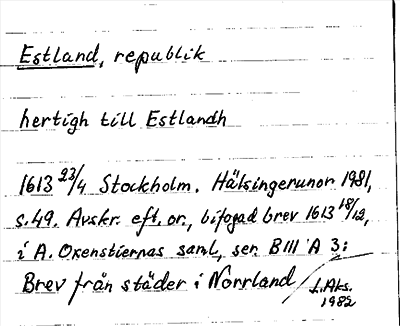 Estland, republik
hertigh till Estlandh
1613 23/4 Stockholm. Hälsingerunor 1981,
s.49. Avskr. eft. or., bifogad brev 1613 18/12,
i A. Oxenstiernas saml, ser. B III A 3:
Brev från städer i Norrland / L.Aks.
1982